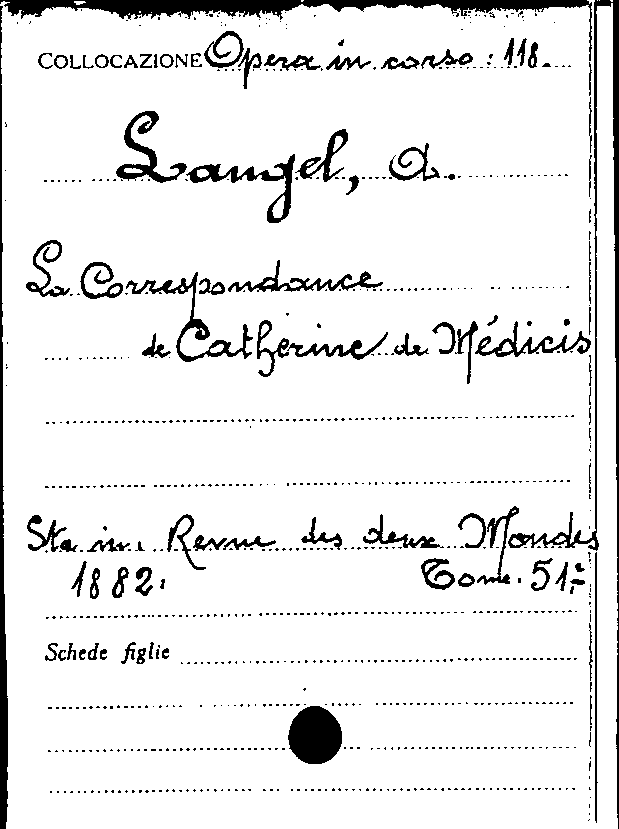 COLLOCAZIONE Opera in corso : 118.
Laugel, A.
La Correspondance
de Catherine de Médicis
Sta in. Revue des deux Mondes
1882. Tome. 51.
Schede figlie